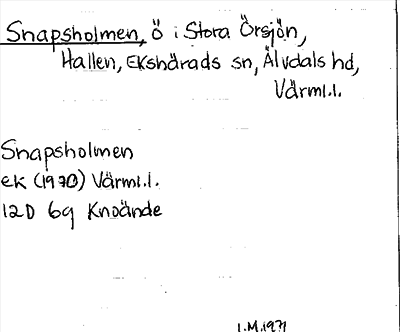 Snapsholmen, ö i Stora Örsjön,
Hallen, Ekshärads sn, Älvdals hd,
Värml.l.
Snapsholmen
ek (1970) Värml.l.
12D 6g Knoände
I.M.1971